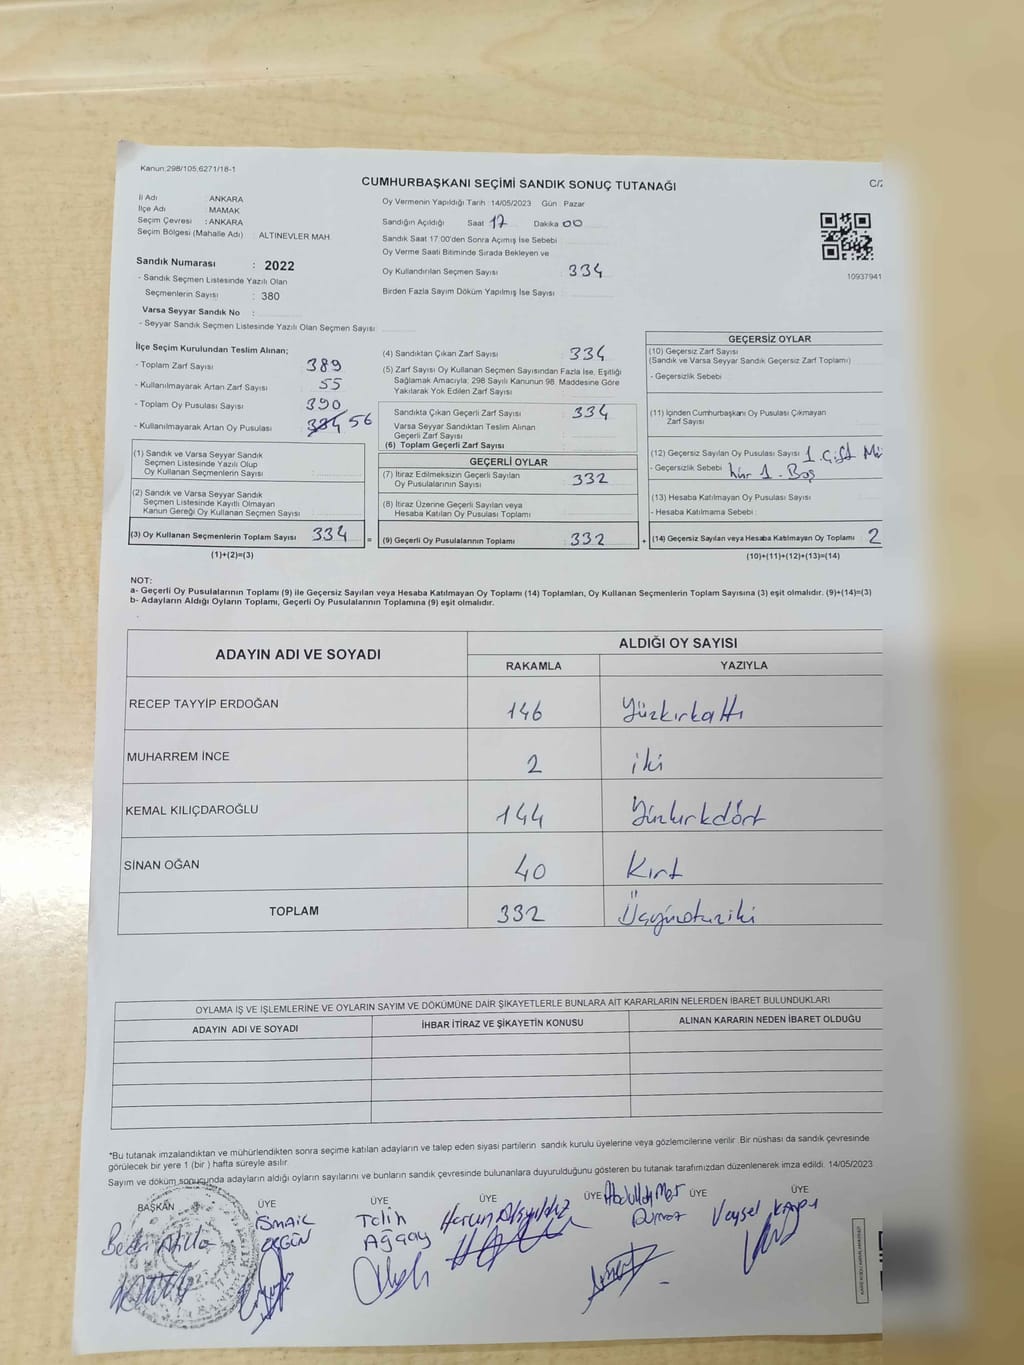 Kanun:298/105;6271/18-1
CUMHURBAŞKANI SEÇİMİ SANDIK SONUÇ TUTANAĞI
İl Adı ANKARA
İlçe Adı : MAMAK
Seçim Çevresi : ANKARA
Seçim Bölgesi (Mahalle Adı) : ALTINEVLER MAH.
Oy Vermenin Yapıldığı Tarih :14/05/2023 Gün : Pazar
Sandığın Açıldığı Saat 17 Dakika 00
Sandık Saat 17:00'den Sonra Açımış İse Sebebi
Oy Verme Saati Bitiminde Sırada Bekleyen ve
Oy Kullandırılan Seçmen Sayısı 334
Birden Fazla Sayım Döküm Yapılmış İse Sayısı :
10937941
Sandık Numarası : 2022
- Sandık Seçmen Listesinde Yazılı Olan
Seçmenlerin Sayısı : 380
Varsa Seyyar Sandık No :
- Seyyar Sandık Seçmen Listesinde Yazılı Olan Seçmen Sayısı:
İlçe Seçim Kurulundan Teslim Alınan;
- Toplam Zarf Sayısı : 389
- Kullanılmayarak Artan Zarf Sayısı : 55
- Toplam Oy Pusulası Sayısı : 390
- Kullanılmayarak Artan Oy Pusulası : 56
(1) Sandık ve Varsa Seyyar Sandık
Seçmen Listesinde Yazılı Olup
Oy Kullanan Seçmenlerin Sayısı :
(2) Sandık ve Varsa Seyyar Sandık
Seçmen Listesinde Kayıtlı Olmayan
Kanun Gereği Oy Kullanan Seçmen Sayısı :
(3) Oy Kullanan Seçmenlerin Toplam Sayısı 334
(1)+(2)=(3)
(4) Sandıktan Çıkan Zarf Sayısı : 334
(5) Zarf Sayısı Oy Kullanan Seçmen Sayısından Fazla İse, Eşitliği
Sağlamak Amacıyla, 298 Sayılı Kanunun 98. Maddesine Göre
Yakılarak Yok Edilen Zarf Sayısı :
Sandıkta Çıkan Geçerli Zarf Sayısı : 334
Varsa Seyyar Sandıktan Teslim Alınan
Geçerli Zarf Sayısı :
(6) Toplam Geçerli Zarf Sayısı :
GEÇERLİ OYLAR
(7) İtiraz Edilmeksizin Geçerli Sayılan
Oy Pusulalarının Sayısı : 332
(8) İtiraz Üzerine Geçerli Sayılan veya
Hesaba Katılan Oy Pusulası Toplamı :
= (9) Geçerli Oy Pusulalarının Toplamı : 332
GEÇERSİZ OYLAR
(10) Geçersiz Zarf Sayısı
(Sandık ve Varsa Seyyar Sandık Geçersiz Zarf Toplamı)
- Geçersizlik Sebebi :
(11) İçinden Cumhurbaşkanı Oy Pusulası Çıkmayan
Zarf Sayısı :
(12) Geçersiz Sayılan Oy Pusulası Sayısı : 1. Çift
- Geçersizlik Sebebi : 1. Boş
(13) Hesaba Katılmayan Oy Pusulası Sayısı :
- Hesaba Katılmama Sebebi :
+ (14) Geçersiz Sayılan veya Hesaba Katılmayan Oy Toplamı 2
(10)+(11)+(12)+(13)=(14)
NOT:
a- Geçerli Oy Pusulalarının Toplamı (9) ile Geçersiz Sayılan veya Hesaba Katılmayan Oy Toplamı (14) Toplamları, Oy Kullanan Seçmenlerin Toplam Sayısına (3) eşit olmalıdır. (9)+(14)=(3)
b- Adayların Aldığı Oyların Toplamı, Geçerli Oy Pusulalarının Toplamına (9) eşit olmalıdır.
ADAYIN ADI VE SOYADI ALDIĞI OY SAYISI
RAKAMLA YAZIYLA
RECEP TAYYİP ERDOĞAN 146 Yüzkırkaltı
MUHARREM İNCE 2 iki
KEMAL KILIÇDAROĞLU 144 Yüzkırkdört
SİNAN OĞAN 40 Kırk
TOPLAM 332 Üçyüzotuziki
OYLAMA İŞ VE İŞLEMLERİNE VE OYLARIN SAYIM VE DÖKÜMÜNE DAİR ŞİKAYETLERLE BUNLARA AİT KARARLARIN NELERDEN İBARET BULUNDUKLARI
ADAYIN ADI VE SOYADI İHBAR İTİRAZ VE ŞİKAYETİN KONUSU ALINAN KARARIN NEDEN İBARET OLDUĞU
*Bu tutanak imzalandıktan ve mühürlendikten sonra seçime katılan adayların ve talep eden siyasi partilerin sandık kurulu üyelerine veya gözlemcilerine verilir .Bir nüshası da sandık çevresinde
görülecek bir yere 1 (bir ) hafta süreyle asılır.
Sayım ve döküm sonucunda adayların aldığı oyların sayılarını ve bunların sandık çevresinde bulunanlara duyurulduğunu gösteren bu tutanak tarafımızdan düzenlenerek imza edildi. 14/05/2023
BAŞKAN ÜYE ÜYE ÜYE ÜYE ÜYE ÜYE
İSMAİL Talih Harun Veysel